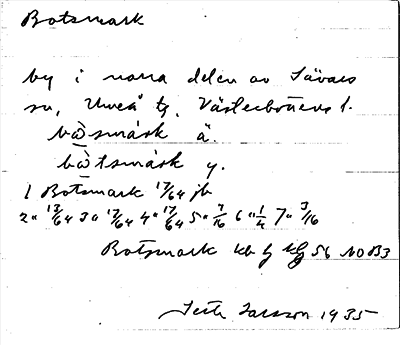 Botsmark
by i norra delen av Sävars
sn, Umeå tg, Västerbottens l.
båsmårk ä.
båtsmårk y.
1 Botsmark 17/64 jb
2" 17/64 3" 17/64 4" 17/64 5" 7/16 6" 1/4 7" 3/16
Botsmark kb 56 NO B3
Larsson 1935